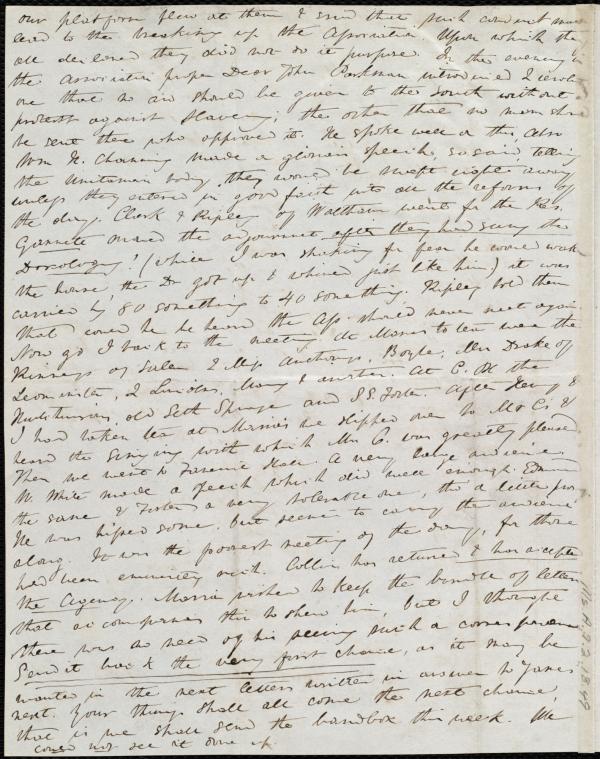 our platform flew at them & said that such conduct must
lead to the breaking up the Association. Upon which they
all declared they did not do it purpose. In the evening in
the Association proper Dear John Parkman introduced 2 resolu
one that no aid should be given to the South without a
protest against Slavery; the other that no man shd
be sent there who approved it. He spoke well on this, also
Wm H. Channing made a glorious speech, so said telling
the Unitarian body, they would be swept right away
unless they entered in good faith into all the reforms of
the day. Clark & Ripley of Waltham went for the Res.
Gannett moved the adjournment after they had sung the
Doxology! (while I was shaking for fear he would wake
the house, the Dr got up & whined just like him) it was
carried by 80 something to 40 something. Ripley told them
that could he he heard the Ass. should never meet again
Now go I back to the meeting. At Marias to tea were the
of Salem 2 Miss Boyle, Mrs Drake of
Leominster, 2 Lincolns, Mary & sister. At C. St the
Hutchinsons, old Seth Sprague and S S Foster. After Henry &
I had taken tea at Marias we slipped over to Mr C's &
heard the Singing with which Mr C. was greatly pleased
Then we went to Faneuil Hall. A very large audience.
W. White made a speech which did well enough.
the same & Foster a very tolerable one, tho' a little
He was hissed some, but seemed to carry the audience
along. It was the poorest meeting of the day, for those
had been eminently rich. Collins has returned & has accepted
the Agency. Maria wished to keep the bundle of letters
that accompanies this to show him, but I thought
there was no need of his seeing such a correspondence
Send it back the very first chance, as it may be
wanted in the next letters written in answer to Yanes
next. Your things shall all come the next chance,
that is we shall send the bandbox this week. We
could not see it done up.
Ms.A.9.2